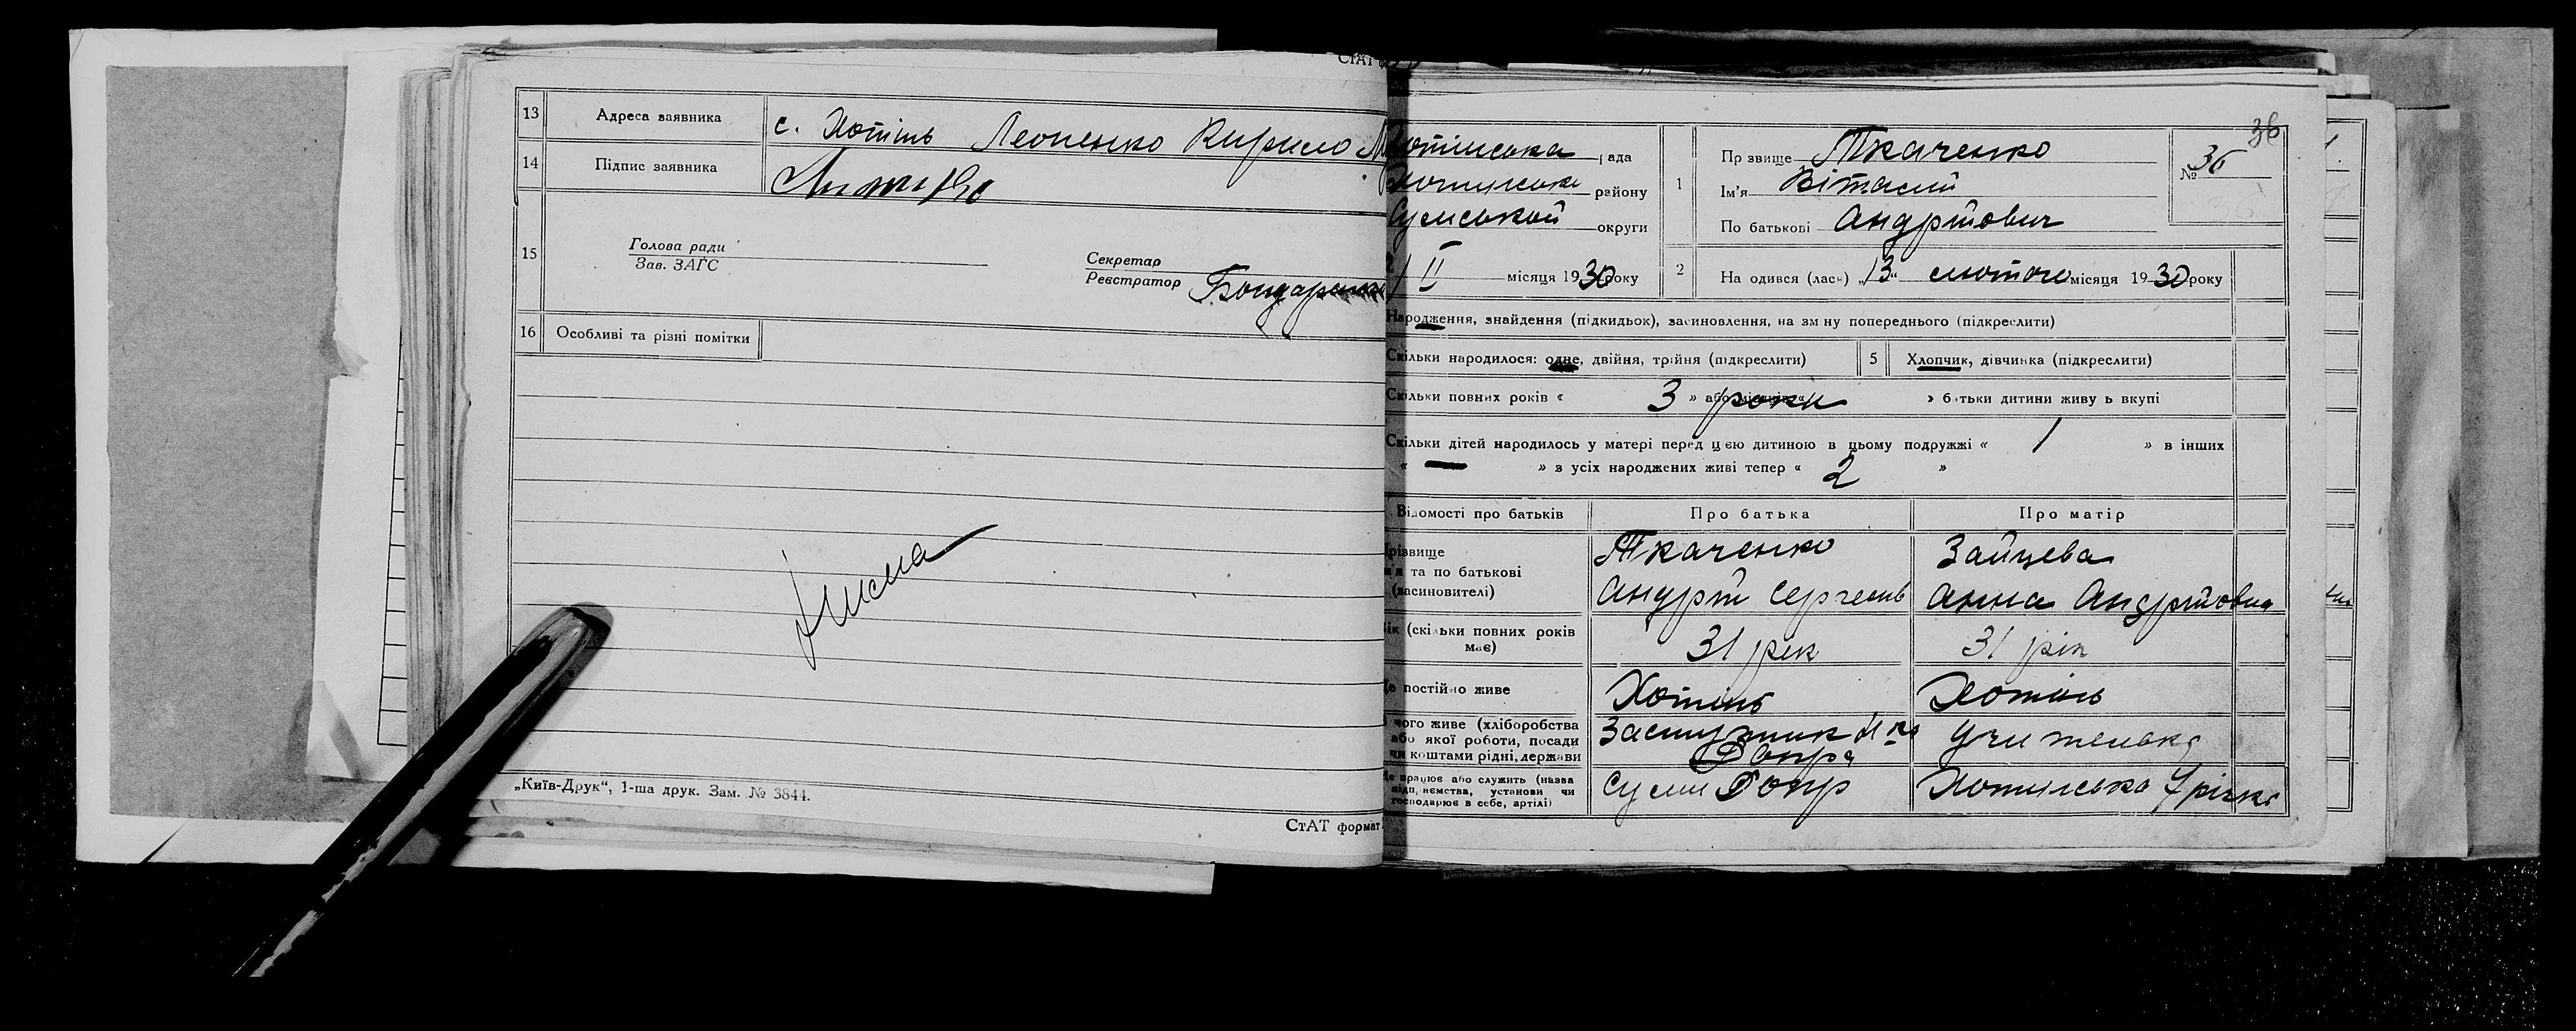 СтАТ
13 Адреса заявника с. Хотінь Леопенко Кирило
14 Підпис заявника
15 Голова ради
Зав. ЗАГС
Секретар
Реєстратор Бондаренко
16 Особливі та різні помітки
„Київ-Друк“, 1-ша друк. Зам. № 3844.
СтАТ формат
36
Хотінська рада
району
Сумської округи
II місяця 1930 року
1 Прізвище Ткаченко
Ім'я Віталій
По батькові Андрійович
№ 36
2 Народився (лась) „13“ лютого місяця 1930 року
Народження, знайдення (підкидьок), засиновлення, на зміну попереднього (підкреслити)
Скільки народилося: одне, двійня, трійня (підкреслити) 5 Хлопчик, дівчинка (підкреслити)
Скільки повних років « 3 » або роки » батьки дитини живуть вкупі
Скільки дітей народилось у матері перед цією дитиною в цьому подружжі « 1 » в інших
« — » з усіх народжених живі тепер « 2 »
Відомості про батьків Про батька Про матір
Прізвище Ткаченко Зайцева
ім'я та по батькові
(засиновителі) Андрій Сергеевів Анна Андрійовна
Вік (скільки повних років має) 31 рік 31 рік
Де постійно живе Хотінь Хотінь
З чого живе (хліборобства
або якої роботи, посади
чи коштами рідні, держави Допра Учителька
Де працює або служить (назва
підприємства, установи чи
господарює в себе, артілі) Суми Допр Хотінська 7 річка